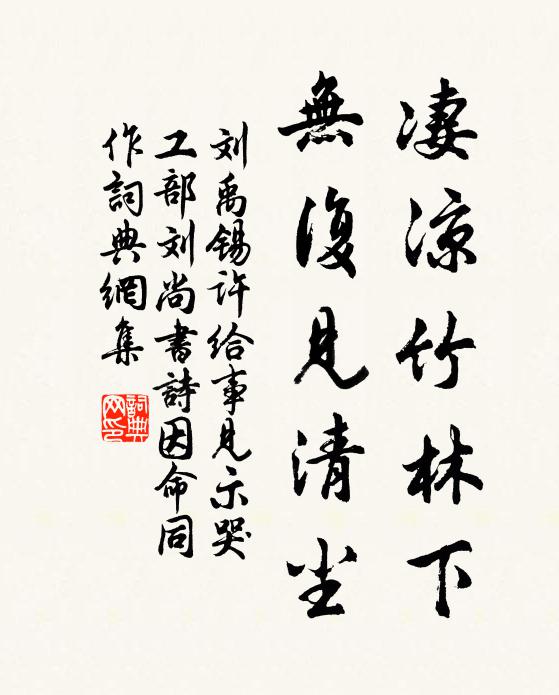 凄凉竹林下
無復見清尘
刘禹锡许给事見示哭
工部刘尚書詩因命同
作詞典網集
詞典网印